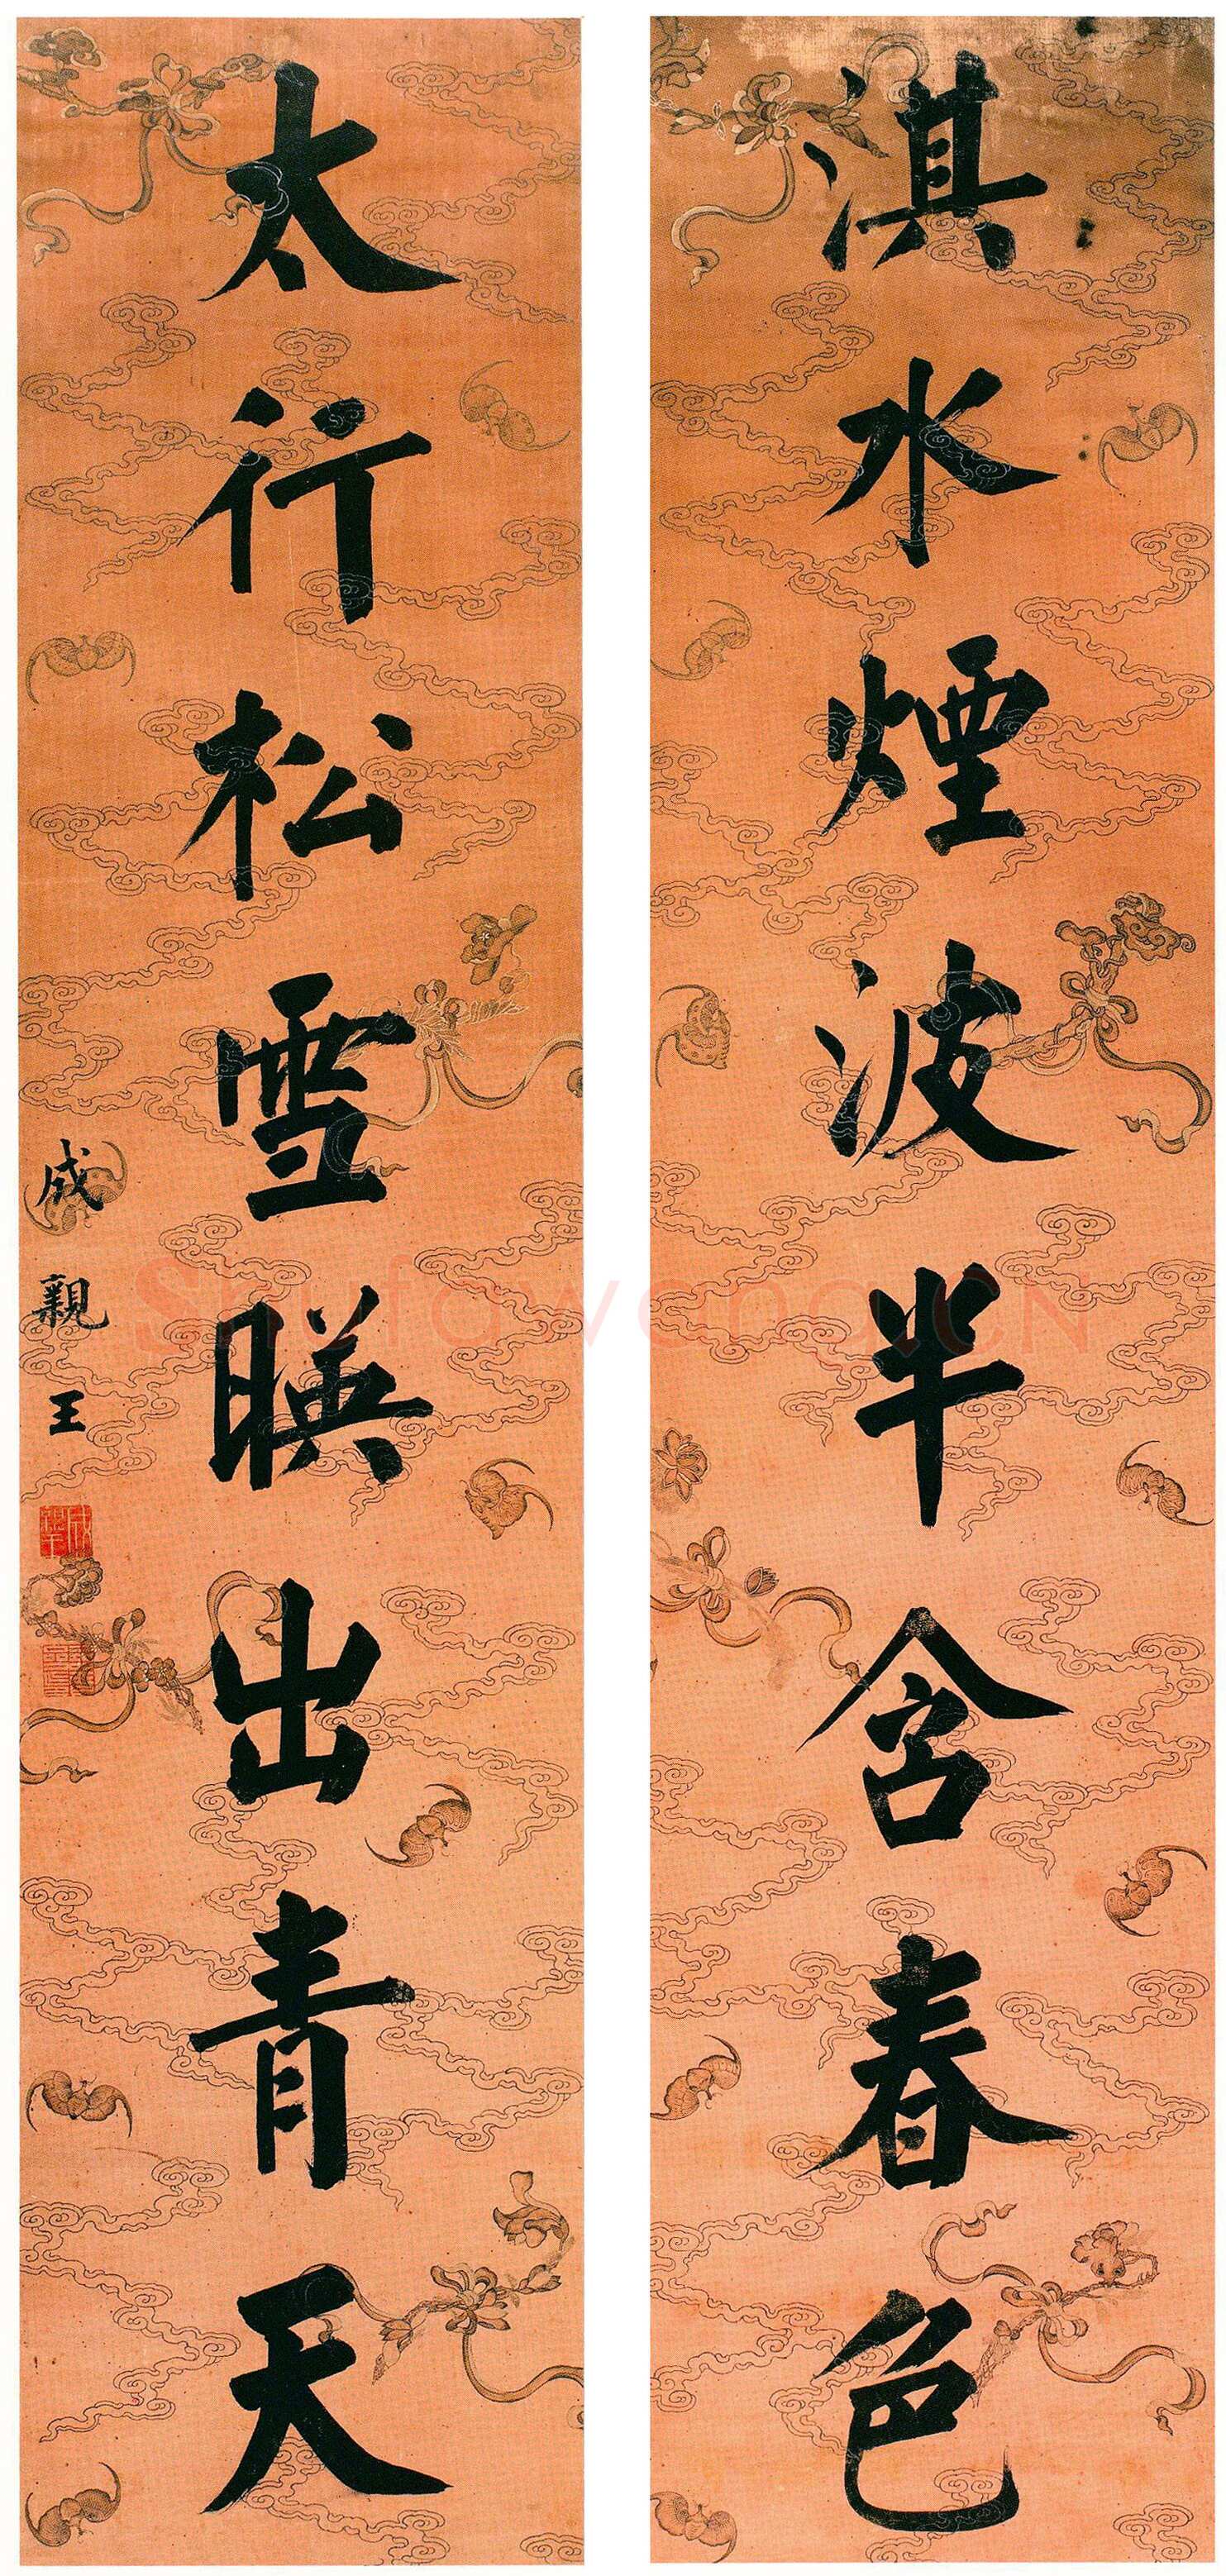 淇水煙波半含春色
太行松雪暎出青天
成親王
Shufawang.CN